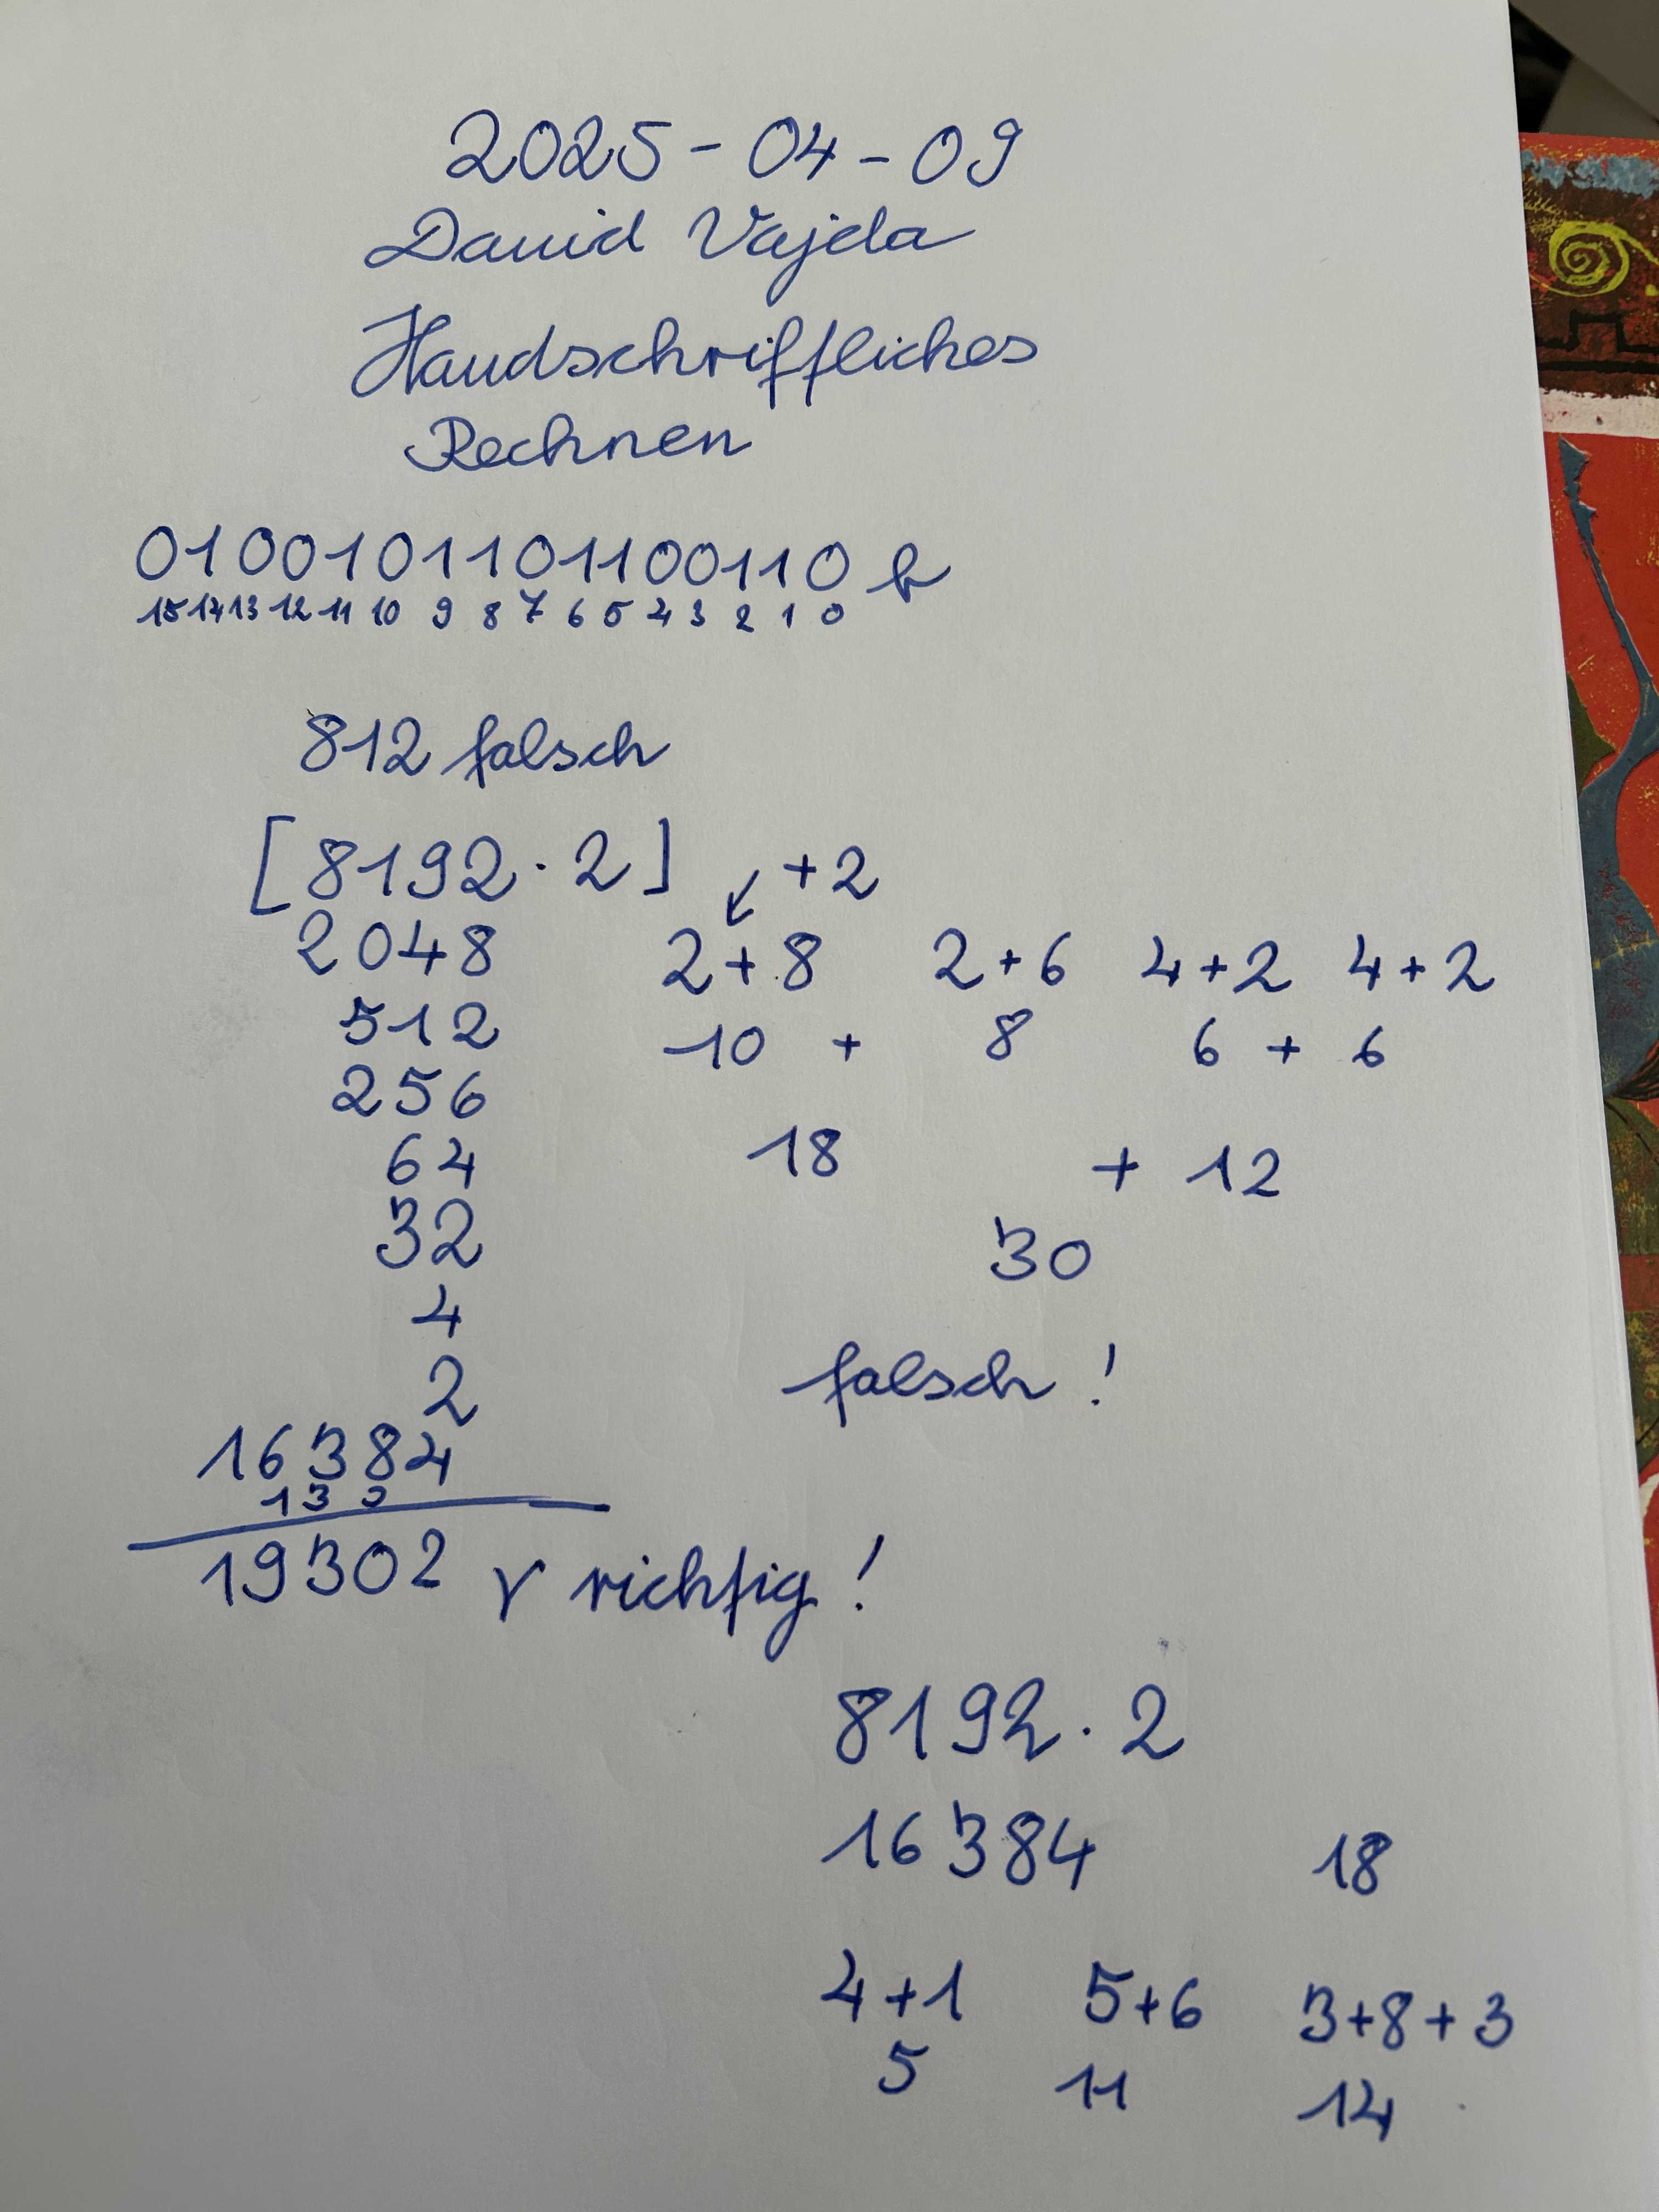 2025-04-09
David Vajda
Handschriftliches
Rechnen
0100101101100110 b
15 14 13 12 11 10 9 8 7 6 5 4 3 2 1 0
812 falsch
[8192 · 2] ↙ +2
2048 2+8 2+6 4+2 4+2
512 10 + 8 6 + 6
256
64 18 + 12
32 30
4
2 falsch!
16384
1 3 2
19302 r richtig!
8192 · 2
16384 18
4+1 5+6 3+8+3
5 11 14